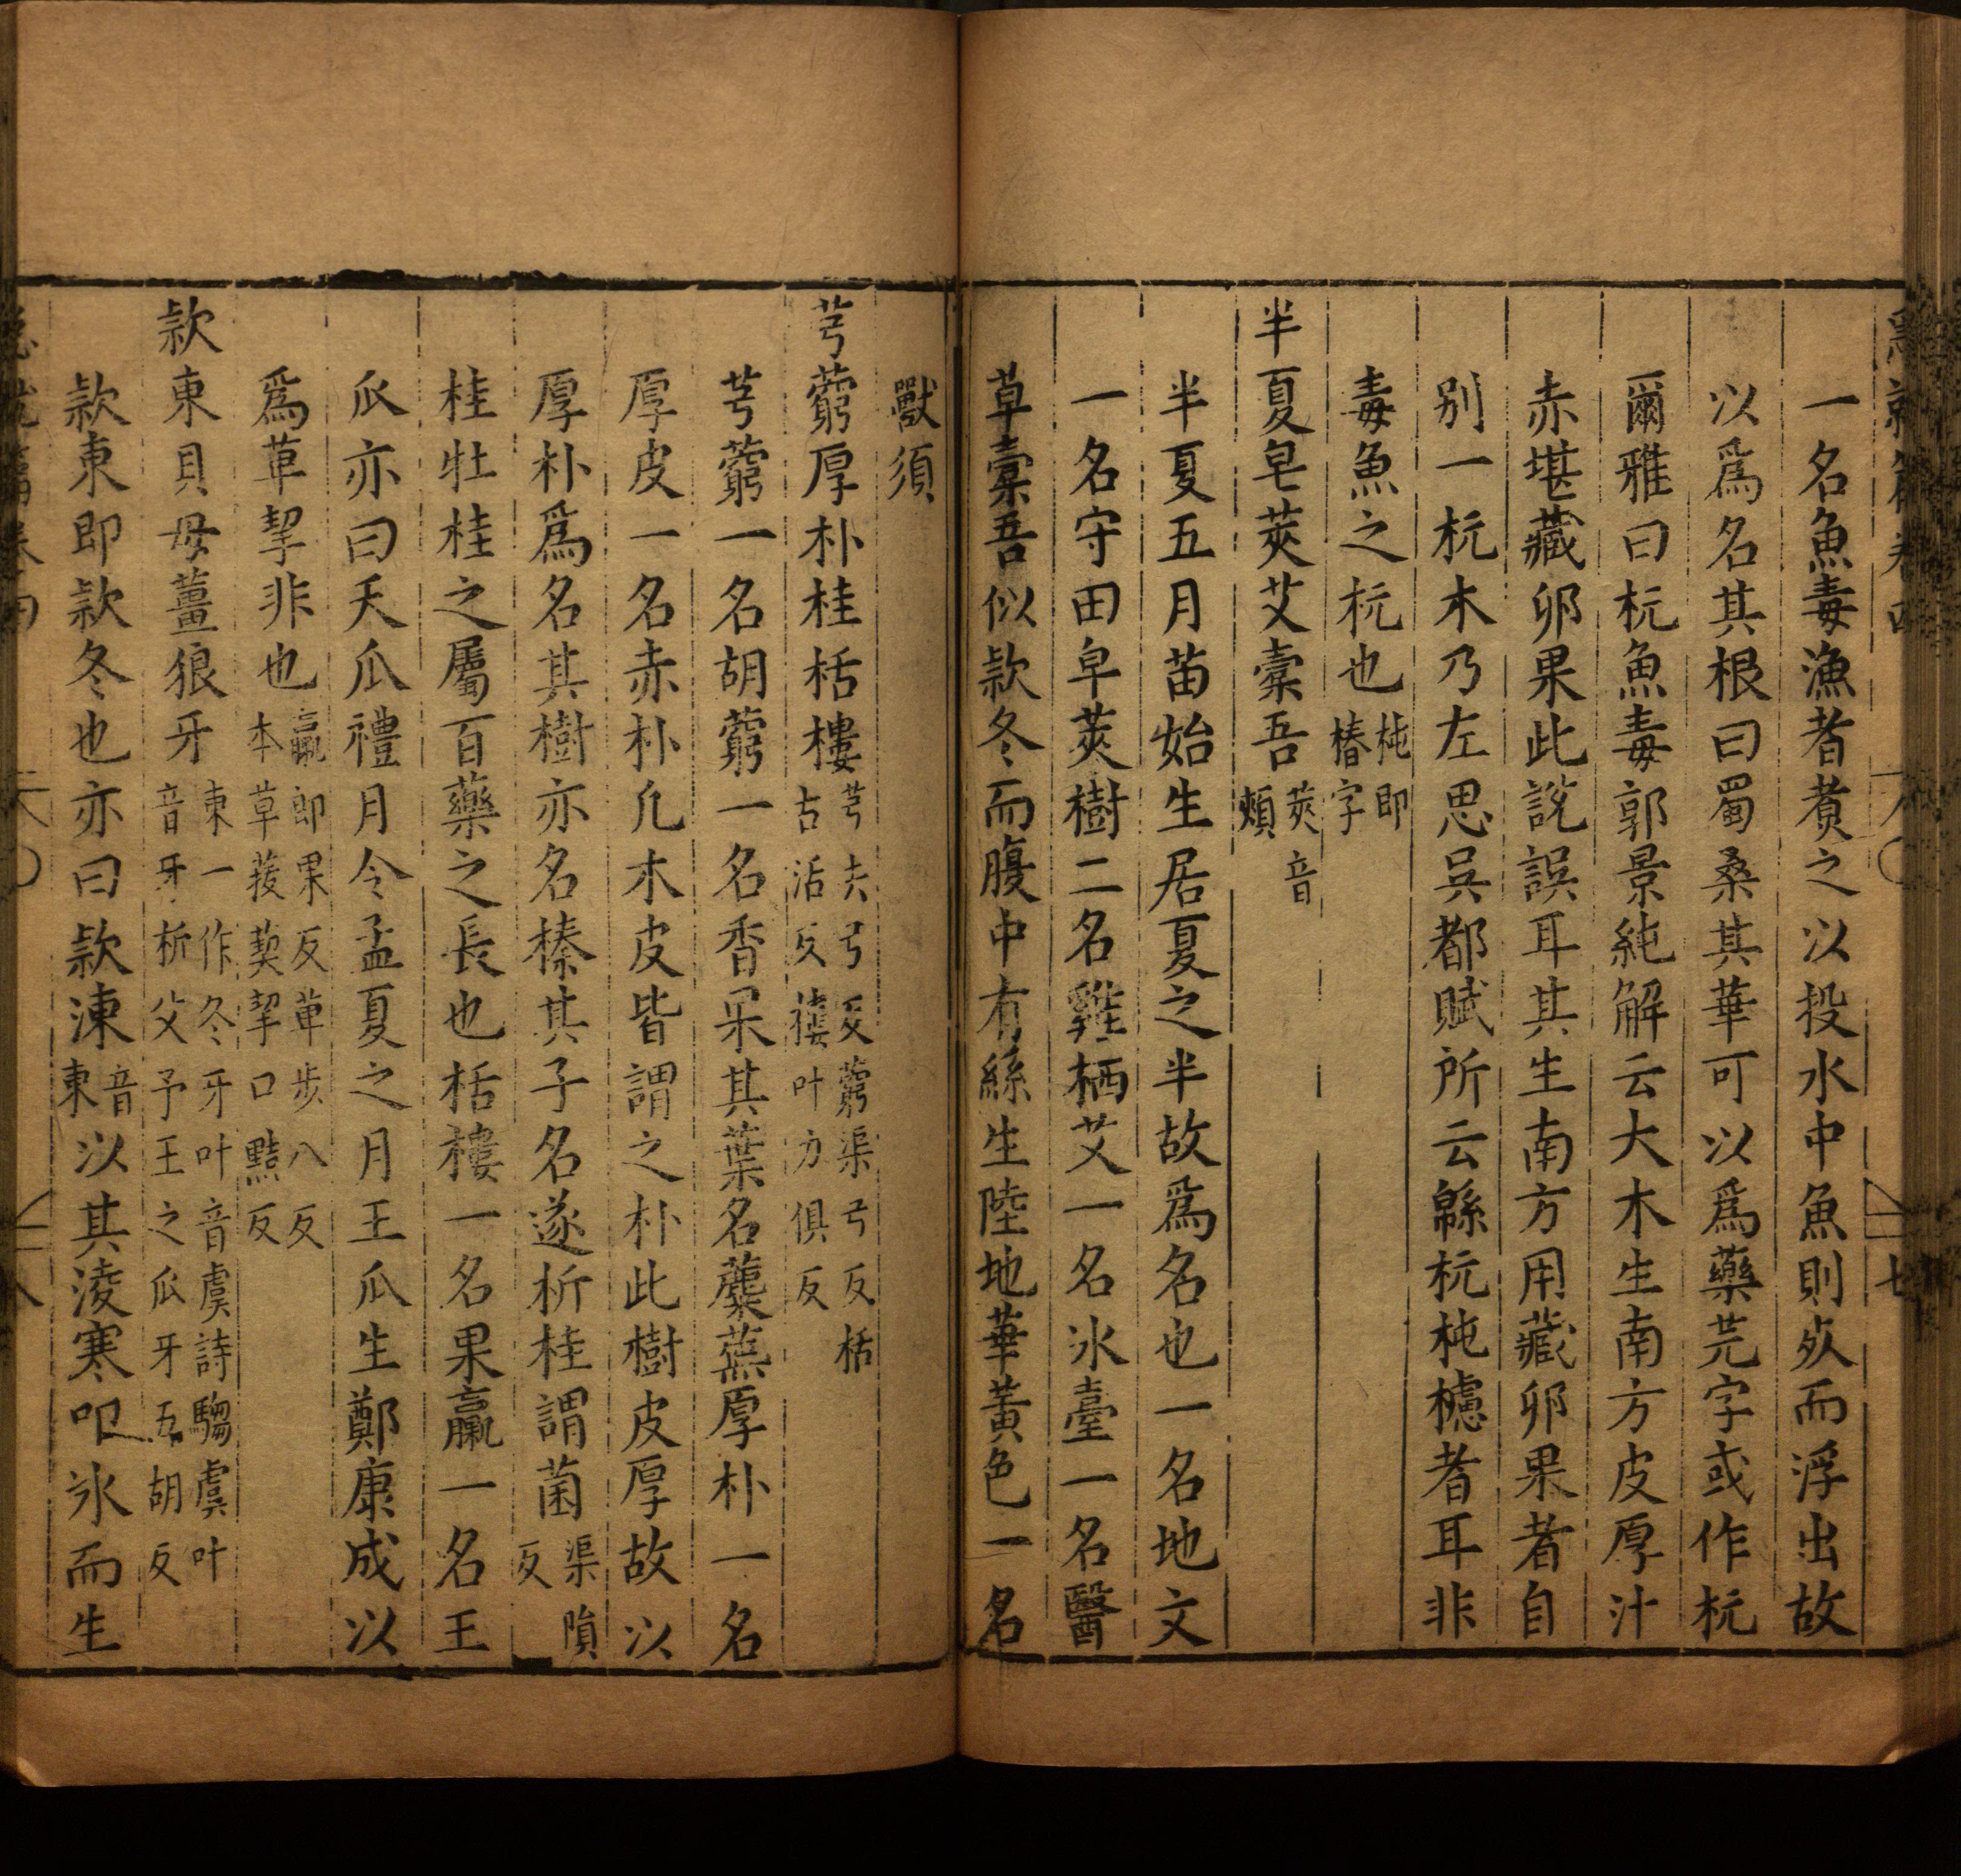 一名魚毒漁者煑之以投水中魚則死而浮出故
以爲名其根曰蜀桑其華可以爲藥芫字或作杬
爾雅曰杬魚毒郭景純解云大木生南方皮厚汁
赤堪藏卵果此説誤耳其生南方用藏卵果者自
别一杬木乃左思吳都賦所云緜杬杶櫨者耳非
毒魚之杬也杶即椿字
半夏皂莢艾橐吾莢音頰
半夏五月苗始生居夏之半故爲名也一名地文
一名守田皁莢樹二名雞栖艾一名冰臺一名醫
草橐吾似款冬而腹中有絲生陸地華黃色一名
獸須
芎藭厚朴桂栝樓芎去弓反藭渠弓反栝古活反樓叶力俱反
芎藭一名胡藭一名香果其葉名蘪蕪厚朴一名
厚皮一名赤朴凡木皮皆謂之朴此樹皮厚故以
厚朴爲名其樹亦名榛其子名逐折桂謂菌渠隕反
桂牡桂之屬百藥之長也栝樓一名果臝一名王
瓜亦曰天瓜禮月令孟夏之月王瓜生鄭康成以
爲萆挈非也臝即果反萆步八反本草菝葜挈口黠反
款東貝母薑狼牙東一作冬牙叶音虞詩騶虞叶音牙祈父予王之瓜牙五胡反
款東即款冬也亦曰款凍音東以其淩寒叩氷而生